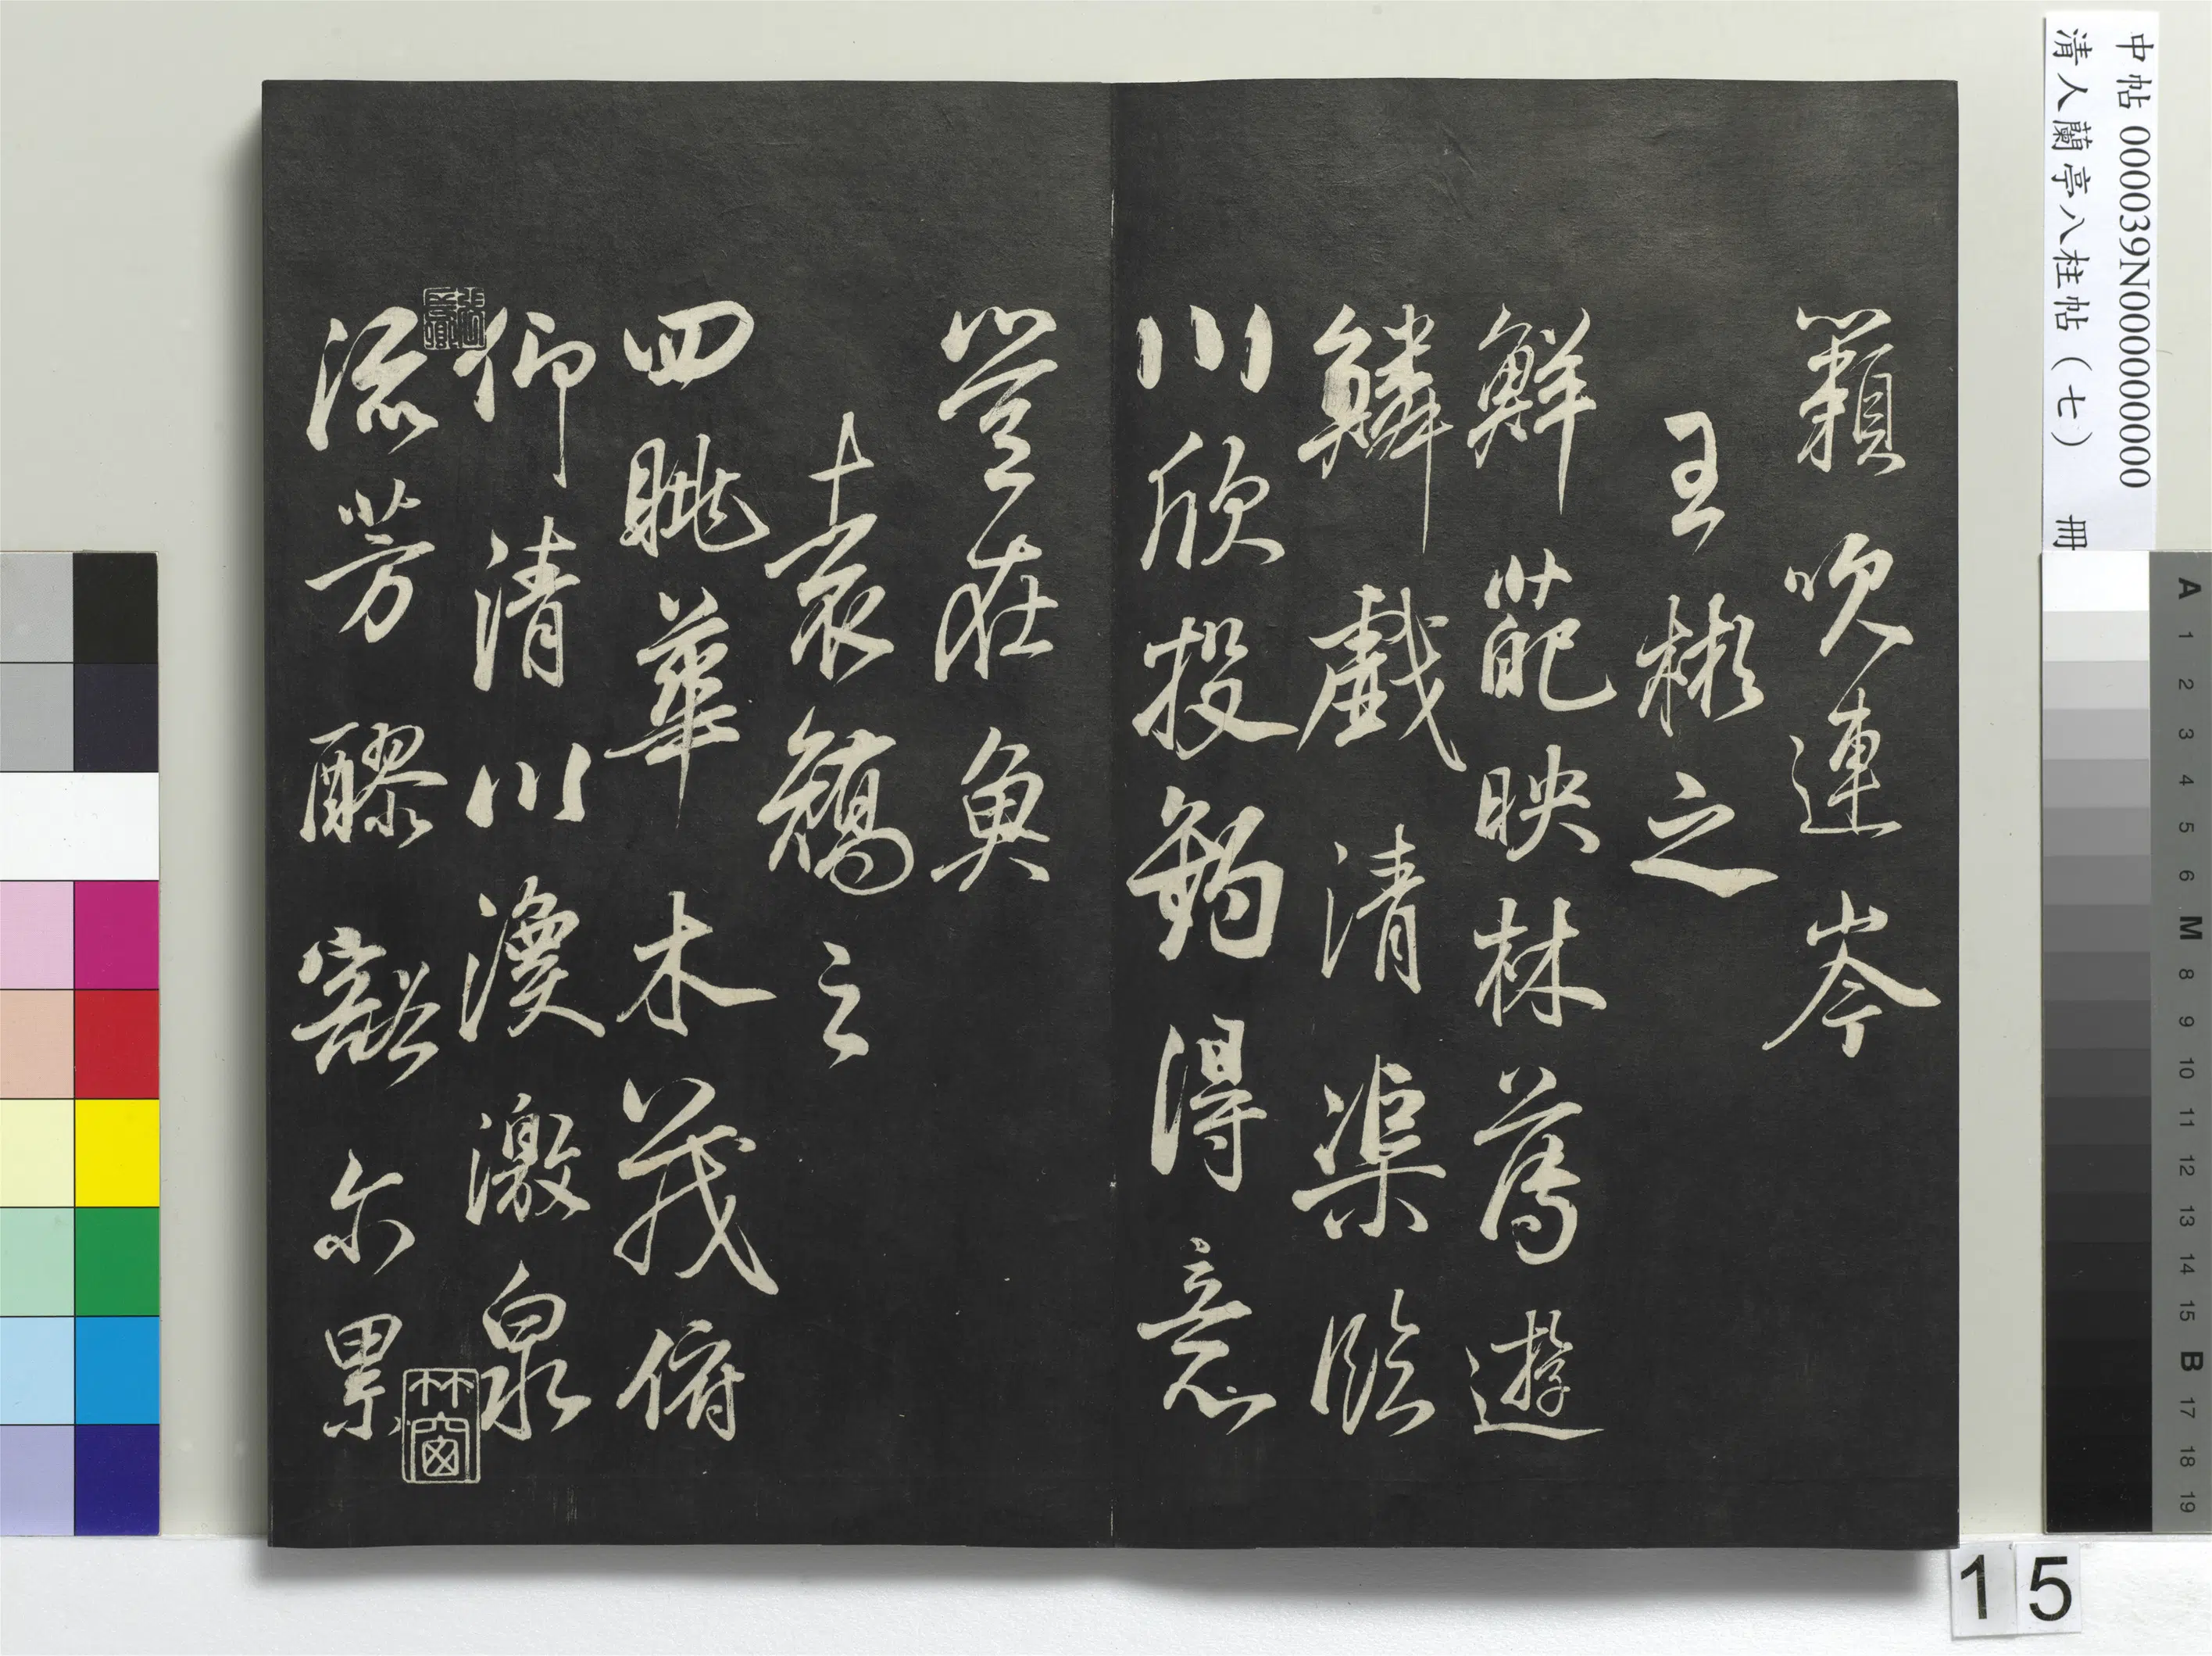 籟吹連岑
王彬之
鮮葩映林薄遊
鱗戲清渠臨
川欣投釣得意
豈在魚
袁矯之
四眺華木茂俯
仰清川渙激泉
流芳醪豁尔累
竹窗
中帖 000039N000000000
清人蘭亭八柱帖（七） 冊
A
1
2
3
4
5
6
M
8
9
10
11
12
13
14
15
B
17
18
19
15